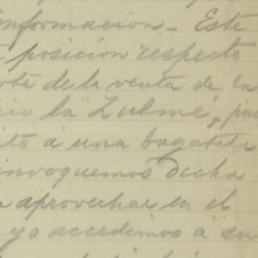 informacion - Este
posicion respecto
de la venta de la
rio la "Zulme", pue
ito á una bagatela
invoquemos dicha
aprovechar en el
yo accedimos a su